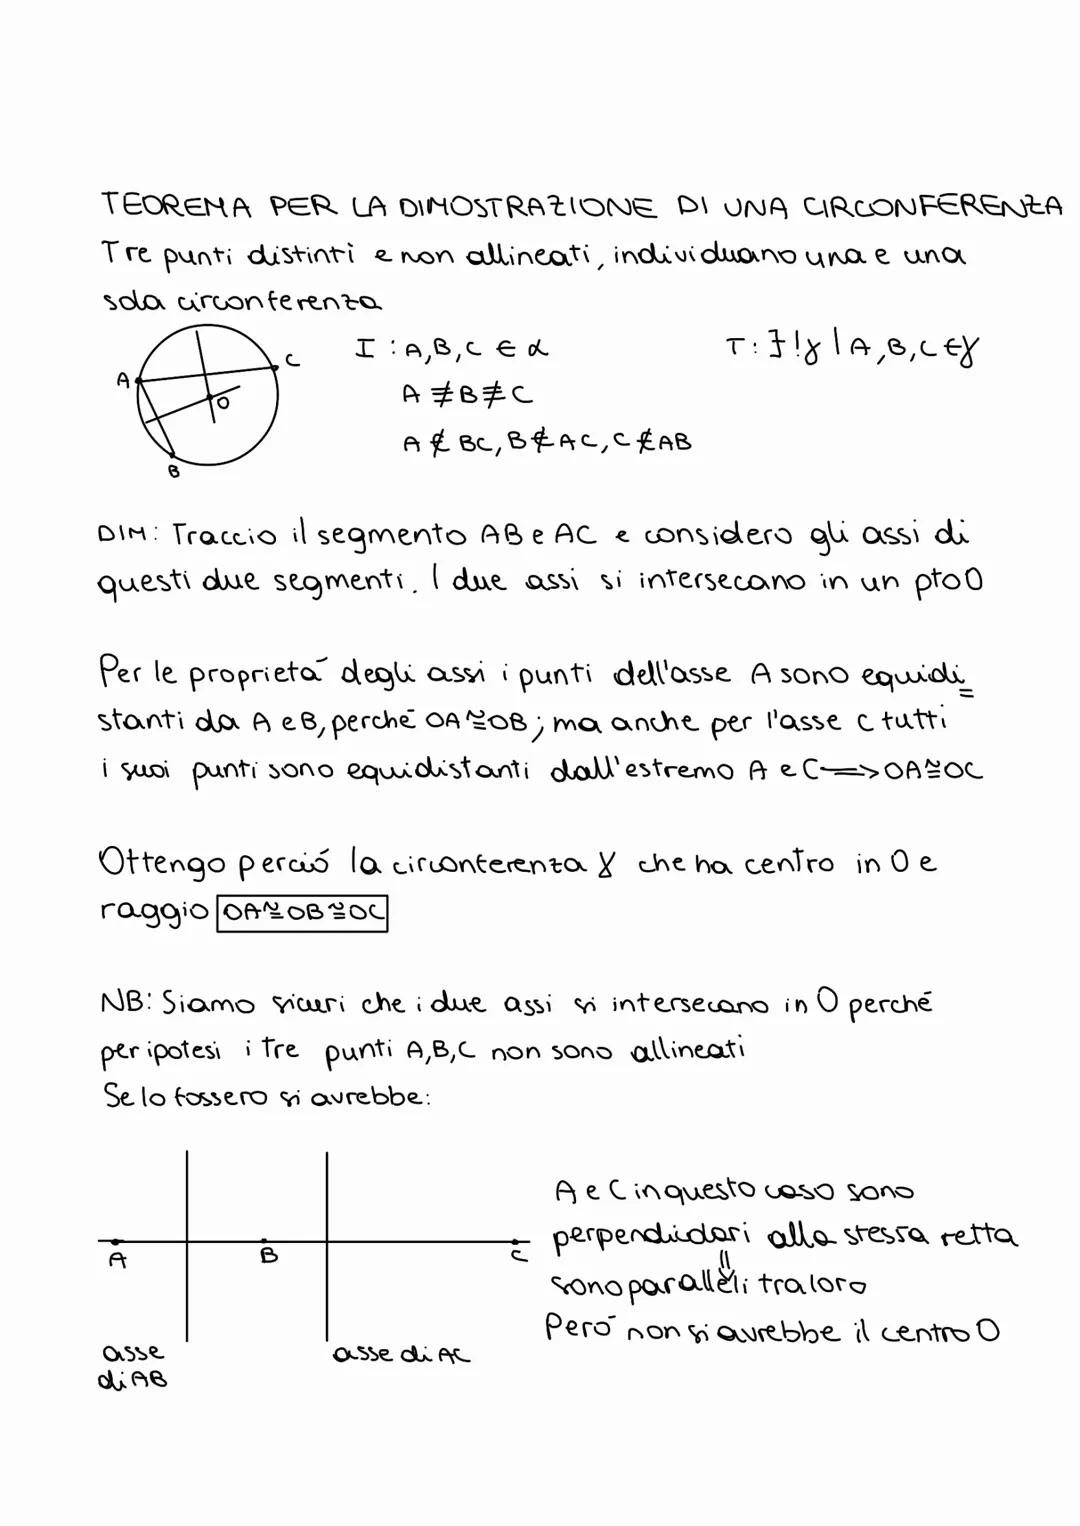 TEOREMA PER LA DIMOSTRAZIONE DI UNA CIRCONFERENZA
Tre punti distinti e non allineati, individuano una e una
sola circonferenza
I : A,B,C ∈ α
T: ∃!γ | A,B,C ∈ γ
A ≢ B ≢ C
A ∉ BC, B ∉ AC, C ∉ AB
A
C
O
B
DIM: Traccio il segmento AB e AC e considero gli assi di
questi due segmenti. I due assi si intersecano in un pto O
Per le proprietá degli assi i punti dell'asse A sono equidi=
stanti da A e B, perché OA≅OB; ma anche per l'asse C tutti
i suoi punti sono equidistanti dall'estremo A e C⟹OA≅OC
Ottengo perció la circonferenza γ che ha centro in O e
raggio OA≅OB≅OC
NB: Siamo sicuri che i due assi si intersecano in O perché
per ipotesi i tre punti A,B,C non sono allineati
Se lo fossero si avrebbe:
A e C in questo caso sono
perpendicolari alla stessa retta
⇓
sono paralleli tra loro
Peró non si avrebbe il centro O
A
B
C
asse
di AB
asse di AC